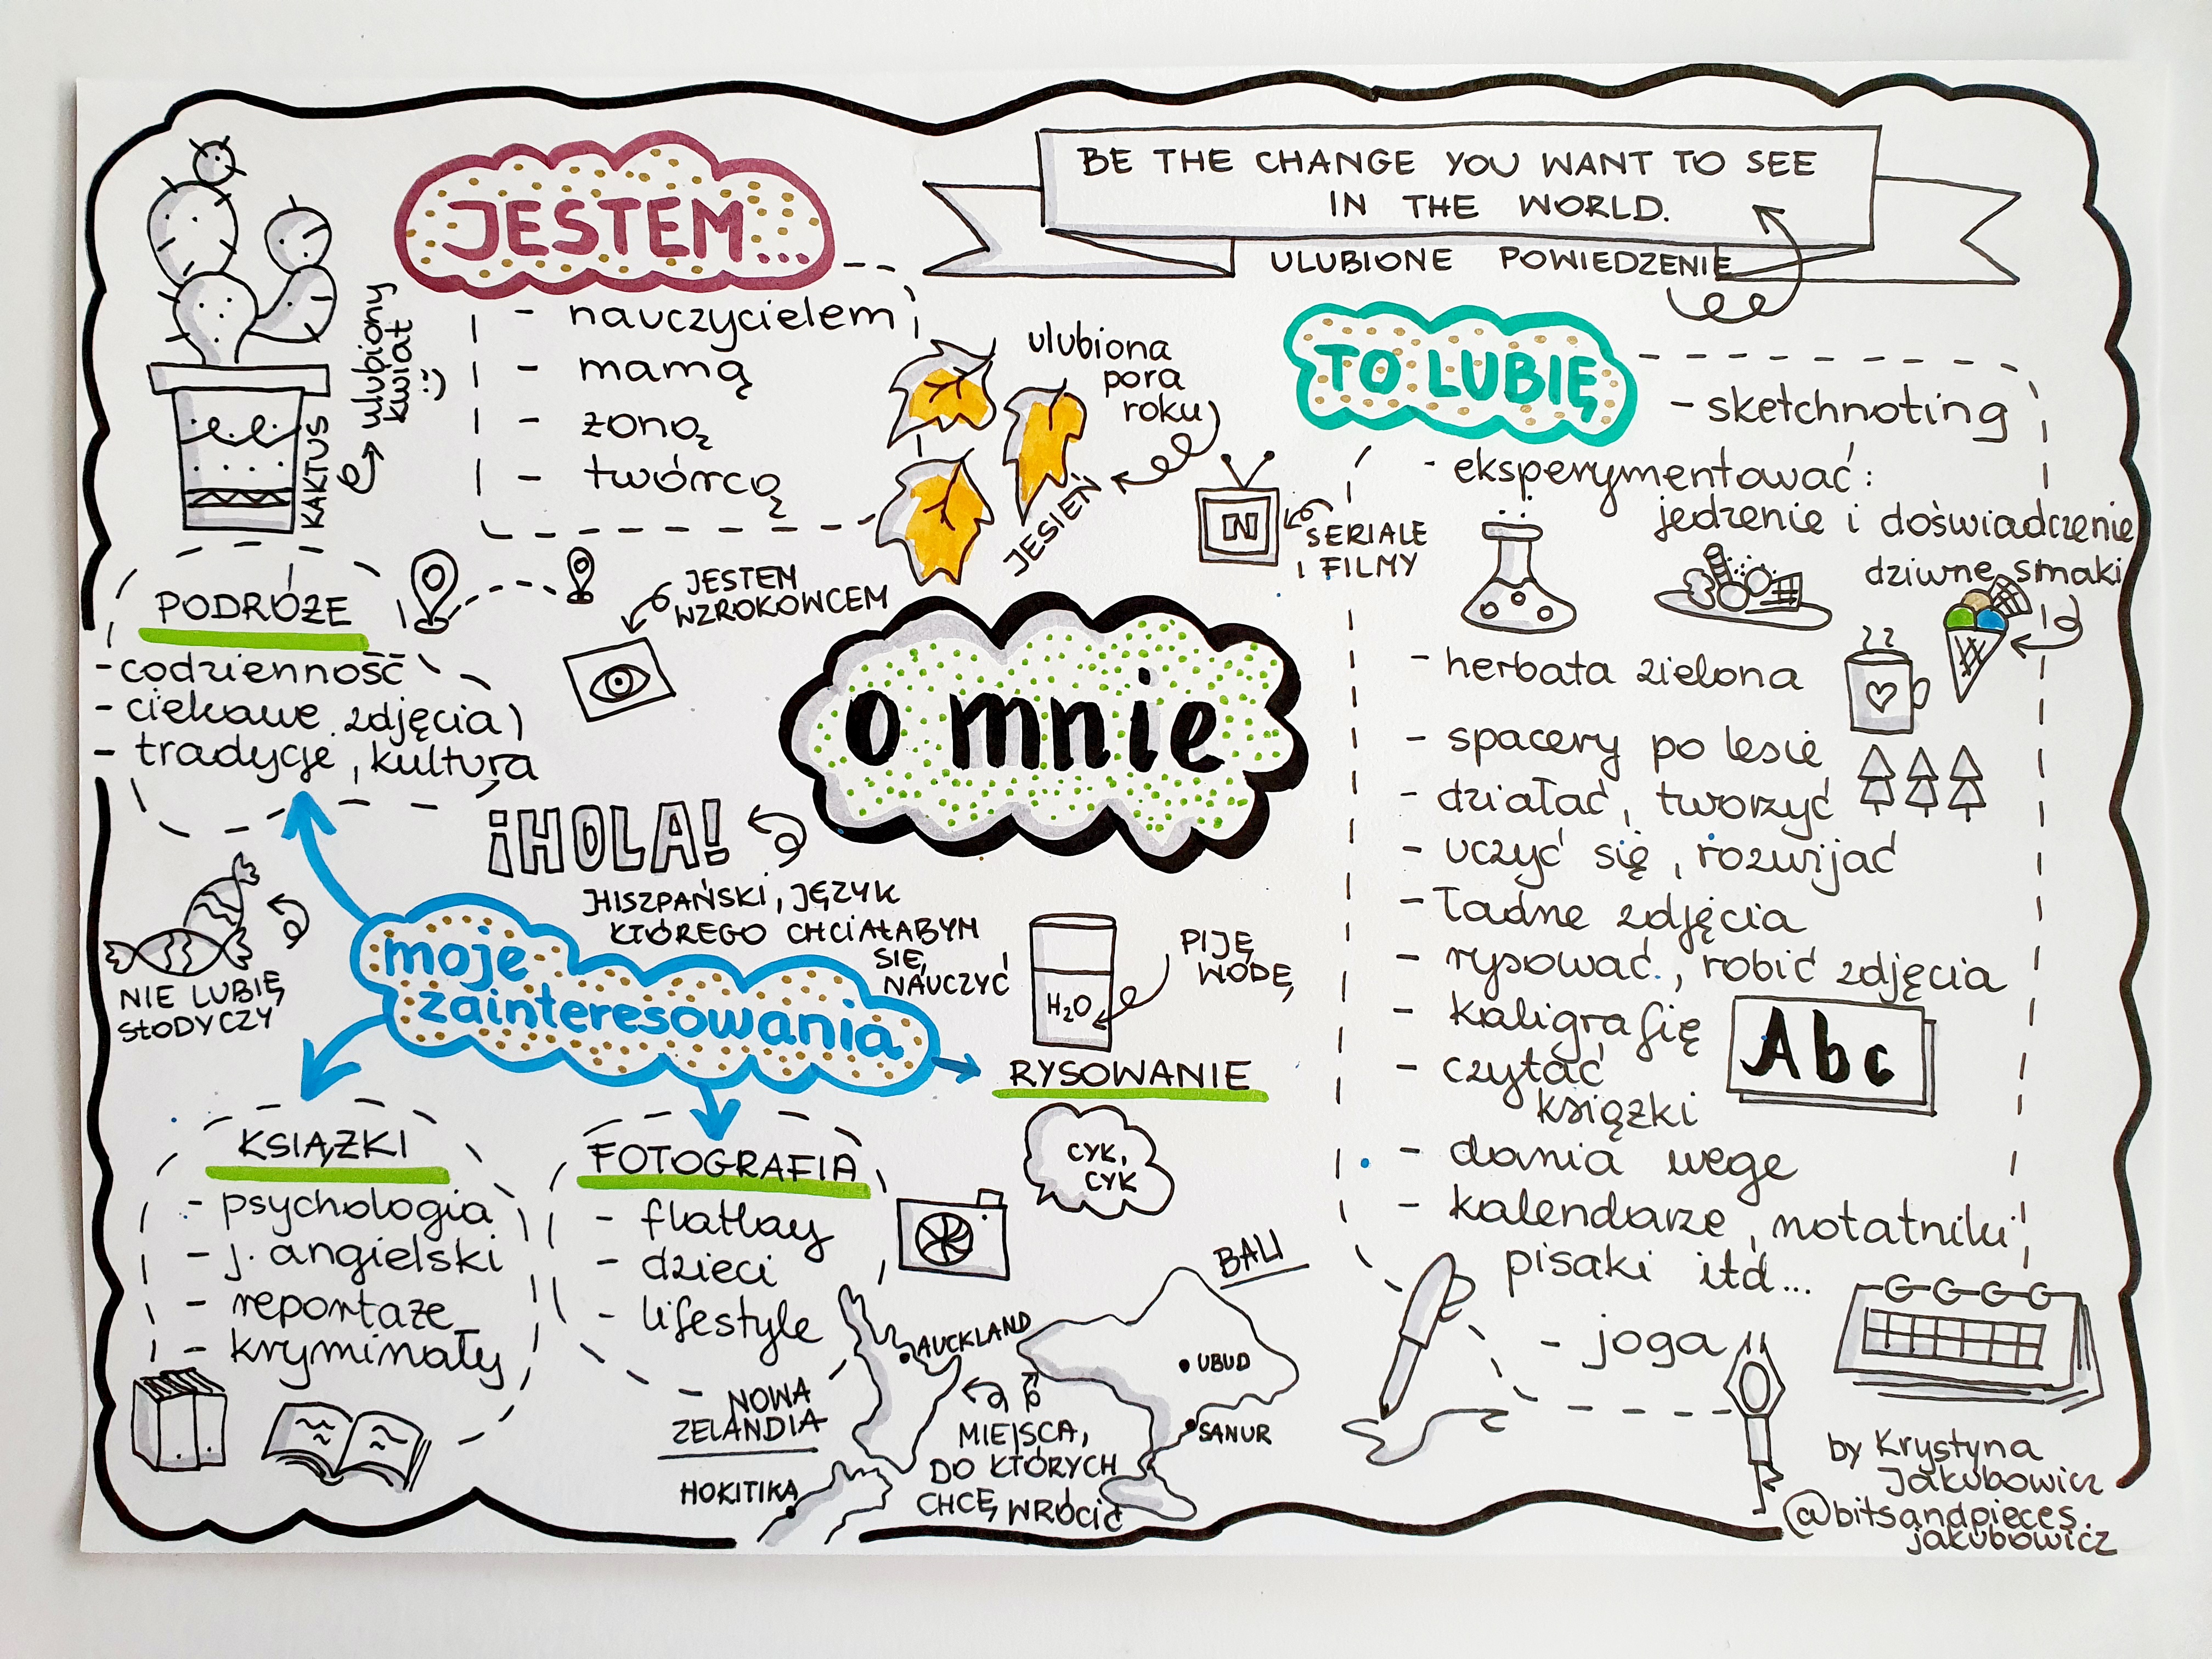 JESTEM...
- nauczycielem
- mamą
- żoną
- twórcą
BE THE CHANGE YOU WANT TO SEE
IN THE WORLD.
ULUBIONE POWIEDZENIE
KAKTUS
ulubiony
kwiat
:)
ulubiona
pora
roku
JESIEŃ
N
SERIALE
I FILMY
TO LUBIĘ
- sketchnoting
- eksperymentować:
jedzenie i doświadczenie
dziwne smaki
- herbata zielona
- spacery po lesie
- działać, tworzyć
- uczyć się, rozwijać
- ładne zdjęcia
- rysować, robić zdjęcia
- kaligrafię
Abc
- czytać
książki
- dania wege
- kalendarze, notatniki,
pisaki itd...
- joga
PODRÓŻE
- codzienność
- ciekawe zdjęcia
- tradycje, kultura
JESTEM
WZROKOWCEM
o mnie
¡HOLA!
HISZPAŃSKI, JĘZYK
KTÓREGO CHCIAŁABYM
SIĘ
NAUCZYĆ
NIE LUBIĘ
SŁODYCZY
moje
zainteresowania
H2O
PIJĘ
WODĘ
RYSOWANIE
CYK,
CYK
KSIĄŻKI
- psychologia
- j. angielski
- reportaże
- kryminały
FOTOGRAFIA
- flatlay
- dzieci
- lifestyle
NOWA
ZELANDIA
AUCKLAND
HOKITIKA
MIEJSCA,
DO KTÓRYCH
CHCĘ WRÓCIĆ
BALI
UBUD
SANUR
by Krystyna
Jakubowicz
@bitsandpieces.
jakubowicz